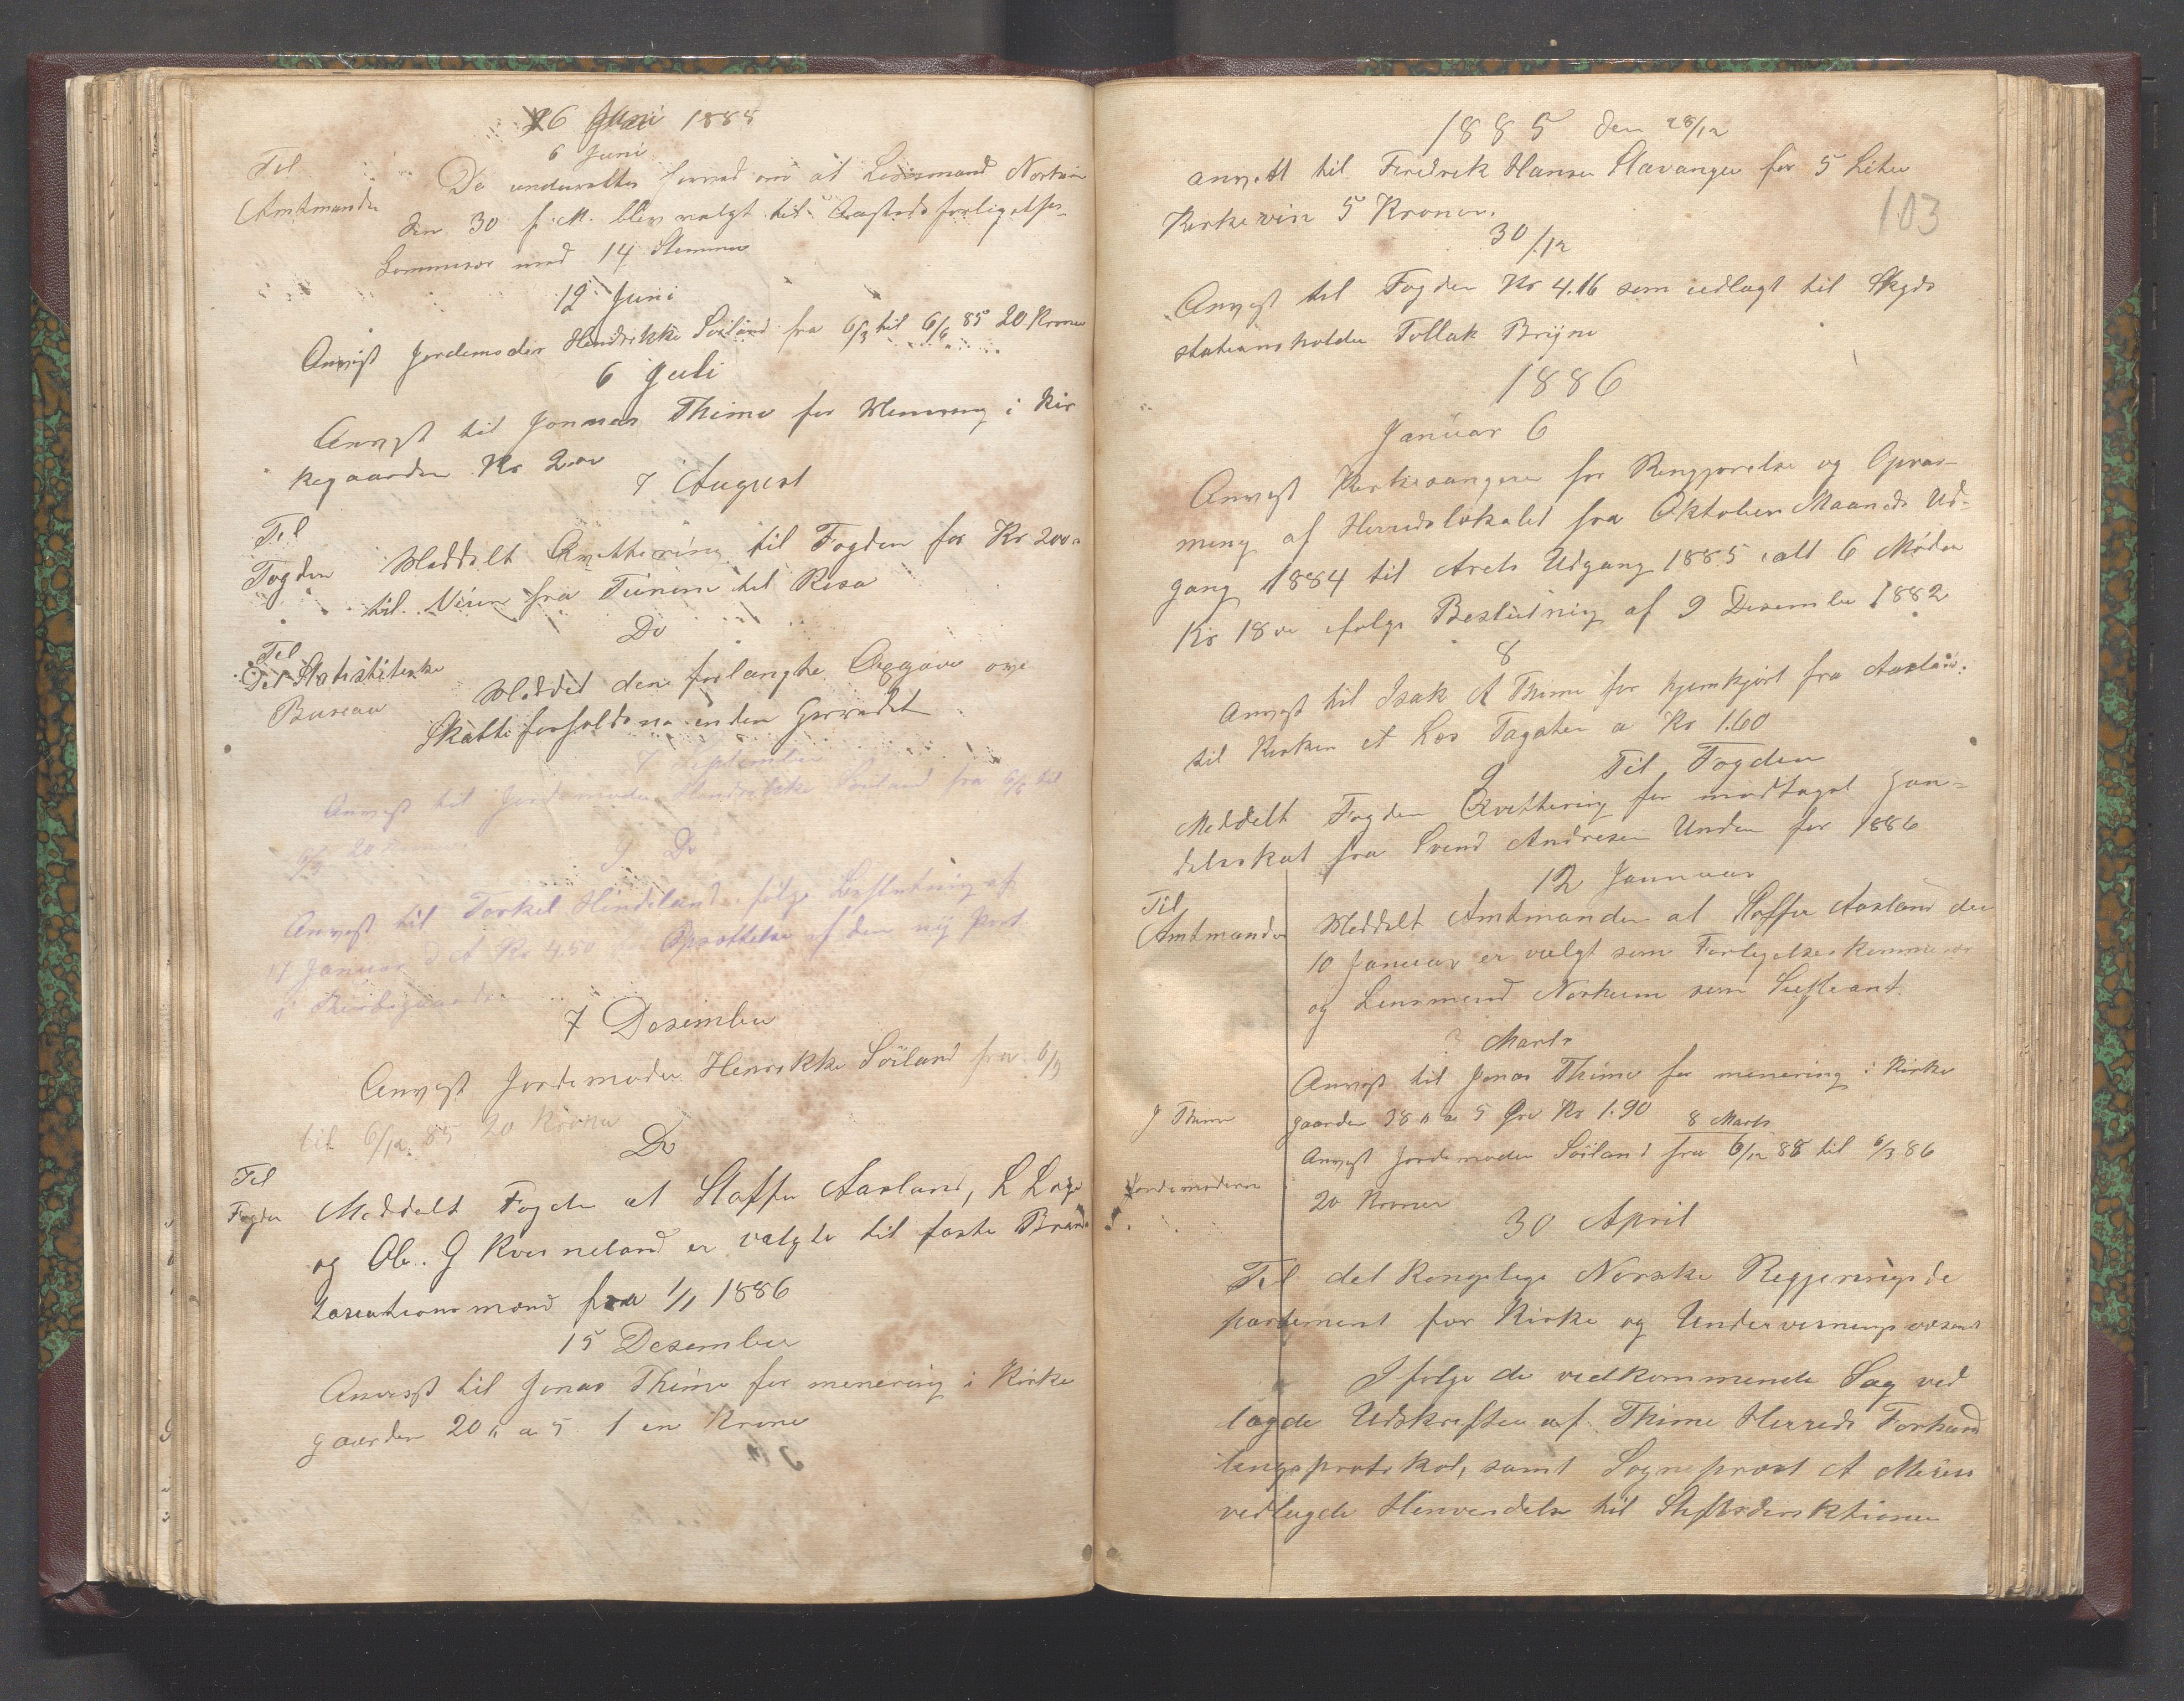 26 Juni 1885
6 Juni
Til
Amtmanden
De underrettes herved om at Lensmand Norheim
den 30 f. M. blev valgt til
Commisær med 14 Stemmer
12 Juni
Anvist Jordemoder Hendrikke Soiland fra 6/3 til 6/6 85 20 Kroner
6 Juli
Anvist til Jonas Thime for Menering i Kir
kegaarden Kr 2.00
7 August
Til
Fogden
Meddelt Qvittering til Fogden for Kr 200
til Veien fra Tunem til Risa
Do
Til
Det Statistiske
Bureau
Meddelt den forlangte Opgave om
Skatteforholdene inden Herredet
7 September
Anvist til Jordemoder Hendrikke Soiland fra 6/6 til
6/9 20 Kroner
9 Do
Anvist til Torkel Hindeland ifølge Beslutning af
17 Januar d A Kr 4.50 for Opsættelse af den ny Port
i Kirkegaarden
7 Desember
Anvist Jordemoder Henrikke Soiland fra 6/9
til 6/12 85 20 Kroner
Do
Til
Fogden
Meddelt Fogden at Staffen Aasland, L Lége
og Ole G Kverneland er valgte til faste Brand
taxationsmænd fra 1/1 1886
15 Desember
Anvist til Jonas Thime for menering i Kirke
gaarden 20 a 5 1 en Krone
103
1885 den 28/12
anvist til Fredrek Hansen Stavanger for 5 Liter
Kirkevin 5 Kroner.
30/12
Anvist til Fogden Kr 4.16 som udlagt til Skyds
stationsholder Tollak Bryne
1886
Januar 6
Anvist Kirkesangeren for Rengjørelse og Opvar-
meng af Herredslokalet fra Oktober Maaneds Ud-
gang 1884 til Arets Udgang 1885 ialt 6 Møder
Kr 18 ifølge Beslutning af 9 Desember 1882
8
Anvist til Isak A Thime for hjemkjørt fra Aasland
til Kirken et Læs Tagsten a Kr 1.60
9 Til Fogden
Meddelt Fogden Qvittering for modtaget Han-
delsskat fra Svend Andresen Unden for 1886
12 Januar
Til
Amtmanden
Meddelt Amtmanden at Staffen Aasland den
10 Januar er valgt som Forligelseskommisær
og Lensmand Norheim som Supleant
Marts
Anvist til Jonas Thime for menering i Kirke
J Thime
gaarden 38 a 5 Øre Kr 1.90 8 Marts
Anvist Jordemoder Soiland fra 6/12 85 til 6/3 86
Jordemoderen
S.
20 Kroner
30 April
Til det Kongelige Norske Regjerings de
partement for Kirke og Undervisningsvæsent
Ifølge de vedkommende Sag ved
lagde Udskrifter af Thime Herreds Forhand
lingsprotokol, samt Sogneprest A
vedlagde Henvendelse til Stiftsdirektionen